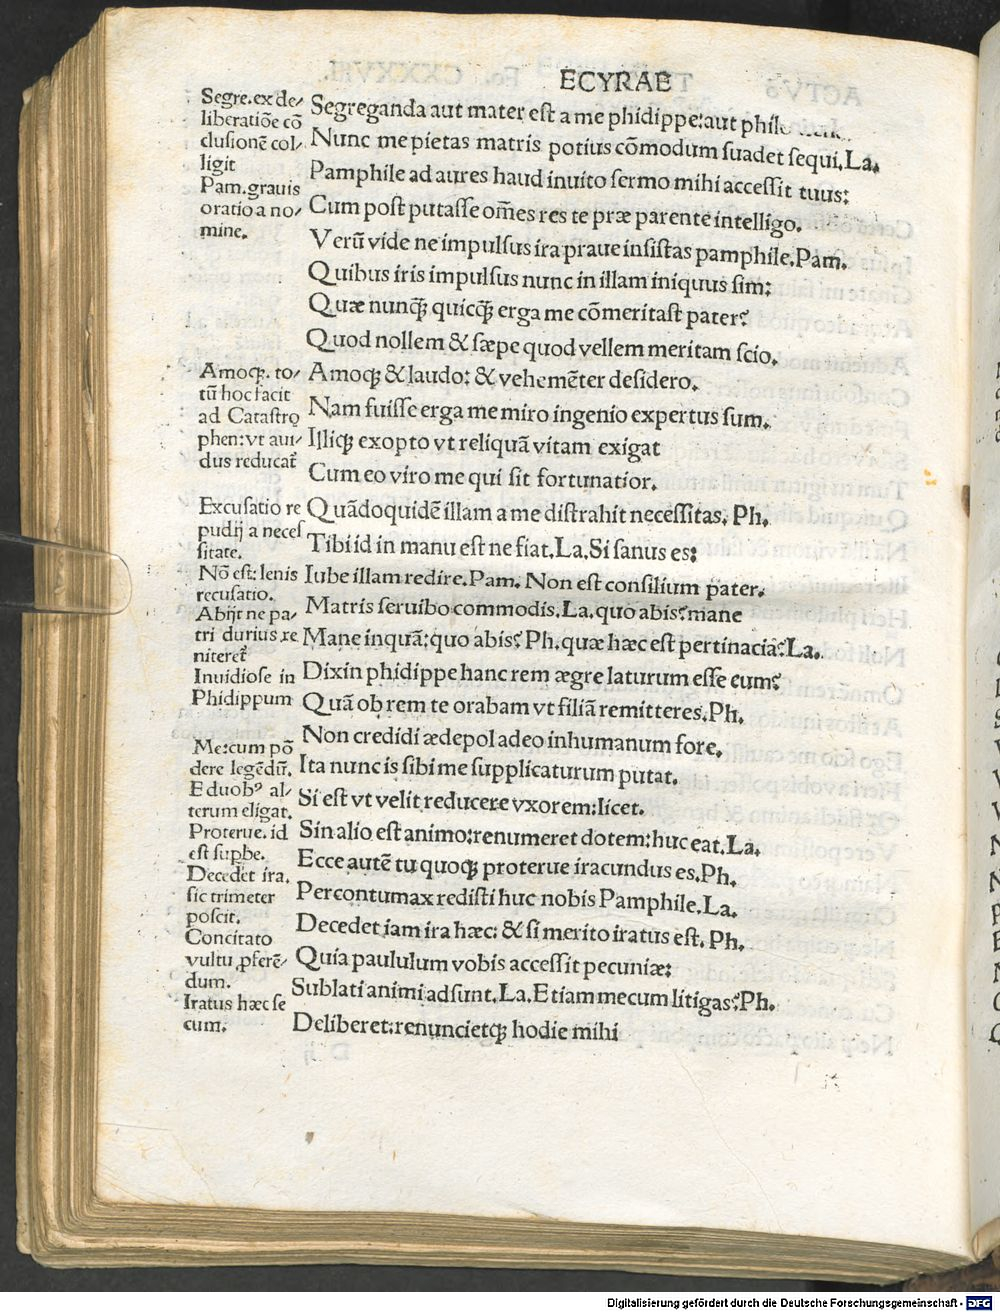 ECYRAE
Segre.ex de/
liberatiõe cõ
clusionẽ col/
ligit
Pam.grauis
oratio a no/
mine.
Segreganda aut mater est a me phidippe:aut
Nunc me pietas matris potius cõmodum suadet sequi.La.
Pamphile ad aures haud inuito sermo mihi accessit tuus:
Cum post putasse om̃es res te præ parente intelligo.
Verũ vide ne impulsus ira praue insistas pamphile.Pam.
Quibus iris impulsus nunc in illam iniquus sim:
Quæ nunꝗ̃ quicꝗ̃ erga me cõmeritast pater?
Quod nollem & sæpe quod vellem meritam scio.
Amoqꝫ. to/
tũ hoc facit
ad Catastro
phen:vt aui/
dus reducat̃
Amoqꝫ & laudo: & vehemẽter desidero.
Nam fuisse erga me miro ingenio expertus sum.
Illiqꝫ exopto vt reliquã vitam exigat
Cum eo viro me qui sit fortunatior.
Excusatio re
pudij a neces
sitate.
Quãdoquidẽ illam a me distrahit necessitas. Ph.
Tibi id in manu est ne fiat.La.Si sanus es:
Nõ est: lenis
recusatio.
Iube illam redire.Pam. Non est consilium pater.
Abijt ne pa/
tri durius re
niteret̃
Matris seruibo commodis.La.quo abis?mane
Mane inquã:quo abis? Ph.quæ hæc est pertinacia?La.
Inuidiose in
Phidippum
Dixin phidippe hanc rem ægre laturum esse eum?
Quã ob rem te orabam vt filiã remitteres.Ph.
Non credidi ædepol adeo inhumanum fore.
Me:cum põ
dere legẽdũ.
Ita nunc is sibi me supplicaturum putat.
E duobꝰ al/
terum eligat.
Si est vt velit reducere vxorem:licet.
Proterue. id
est supbe.
Sin alio est animo:renumeret dotem:huc eat.La.
Ecce autẽ tu quoqꝫ proterue iracundus es.Ph.
Decedet ira.
sic trimeter
poscit.
Percontumax redisti huc nobis Pamphile.La.
Decedet iam ira hæc: & si merito iratus est. Ph.
Concitato
vultu ꝓferẽ/
dum.
Quia paululum vobis accessit pecuniæ:
Sublati animi adsunt.La.Etiam mecum litigas?Ph.
Iratus hæc se
cum.
Deliberet:renuncietqꝫ hodie mihi
Digitalisierung gefördert durch die Deutsche Forschungsgemeinschaft - DFG